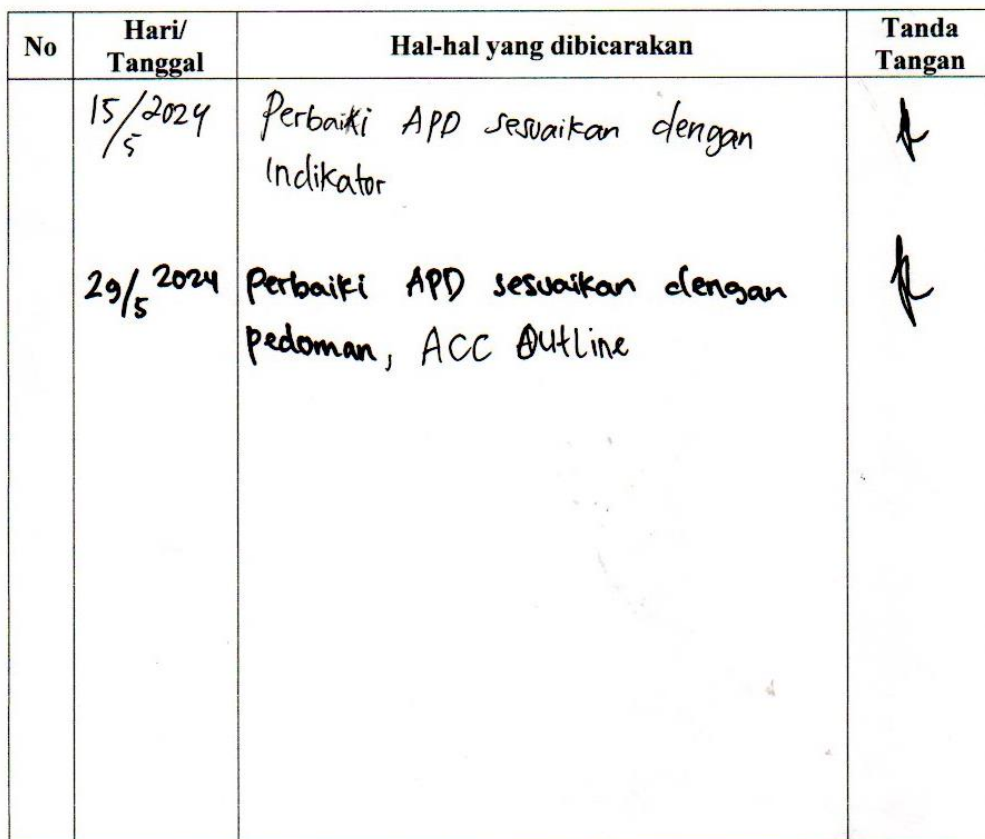 No Hari/ Tanggal Hal-hal yang dibicarakan Tanda Tangan
15/5 2024 Perbaiki APD sesuaikan dengan
Indikator
29/5 2024 Perbaiki APD sesuaikan dengan
pedoman, ACC Outline